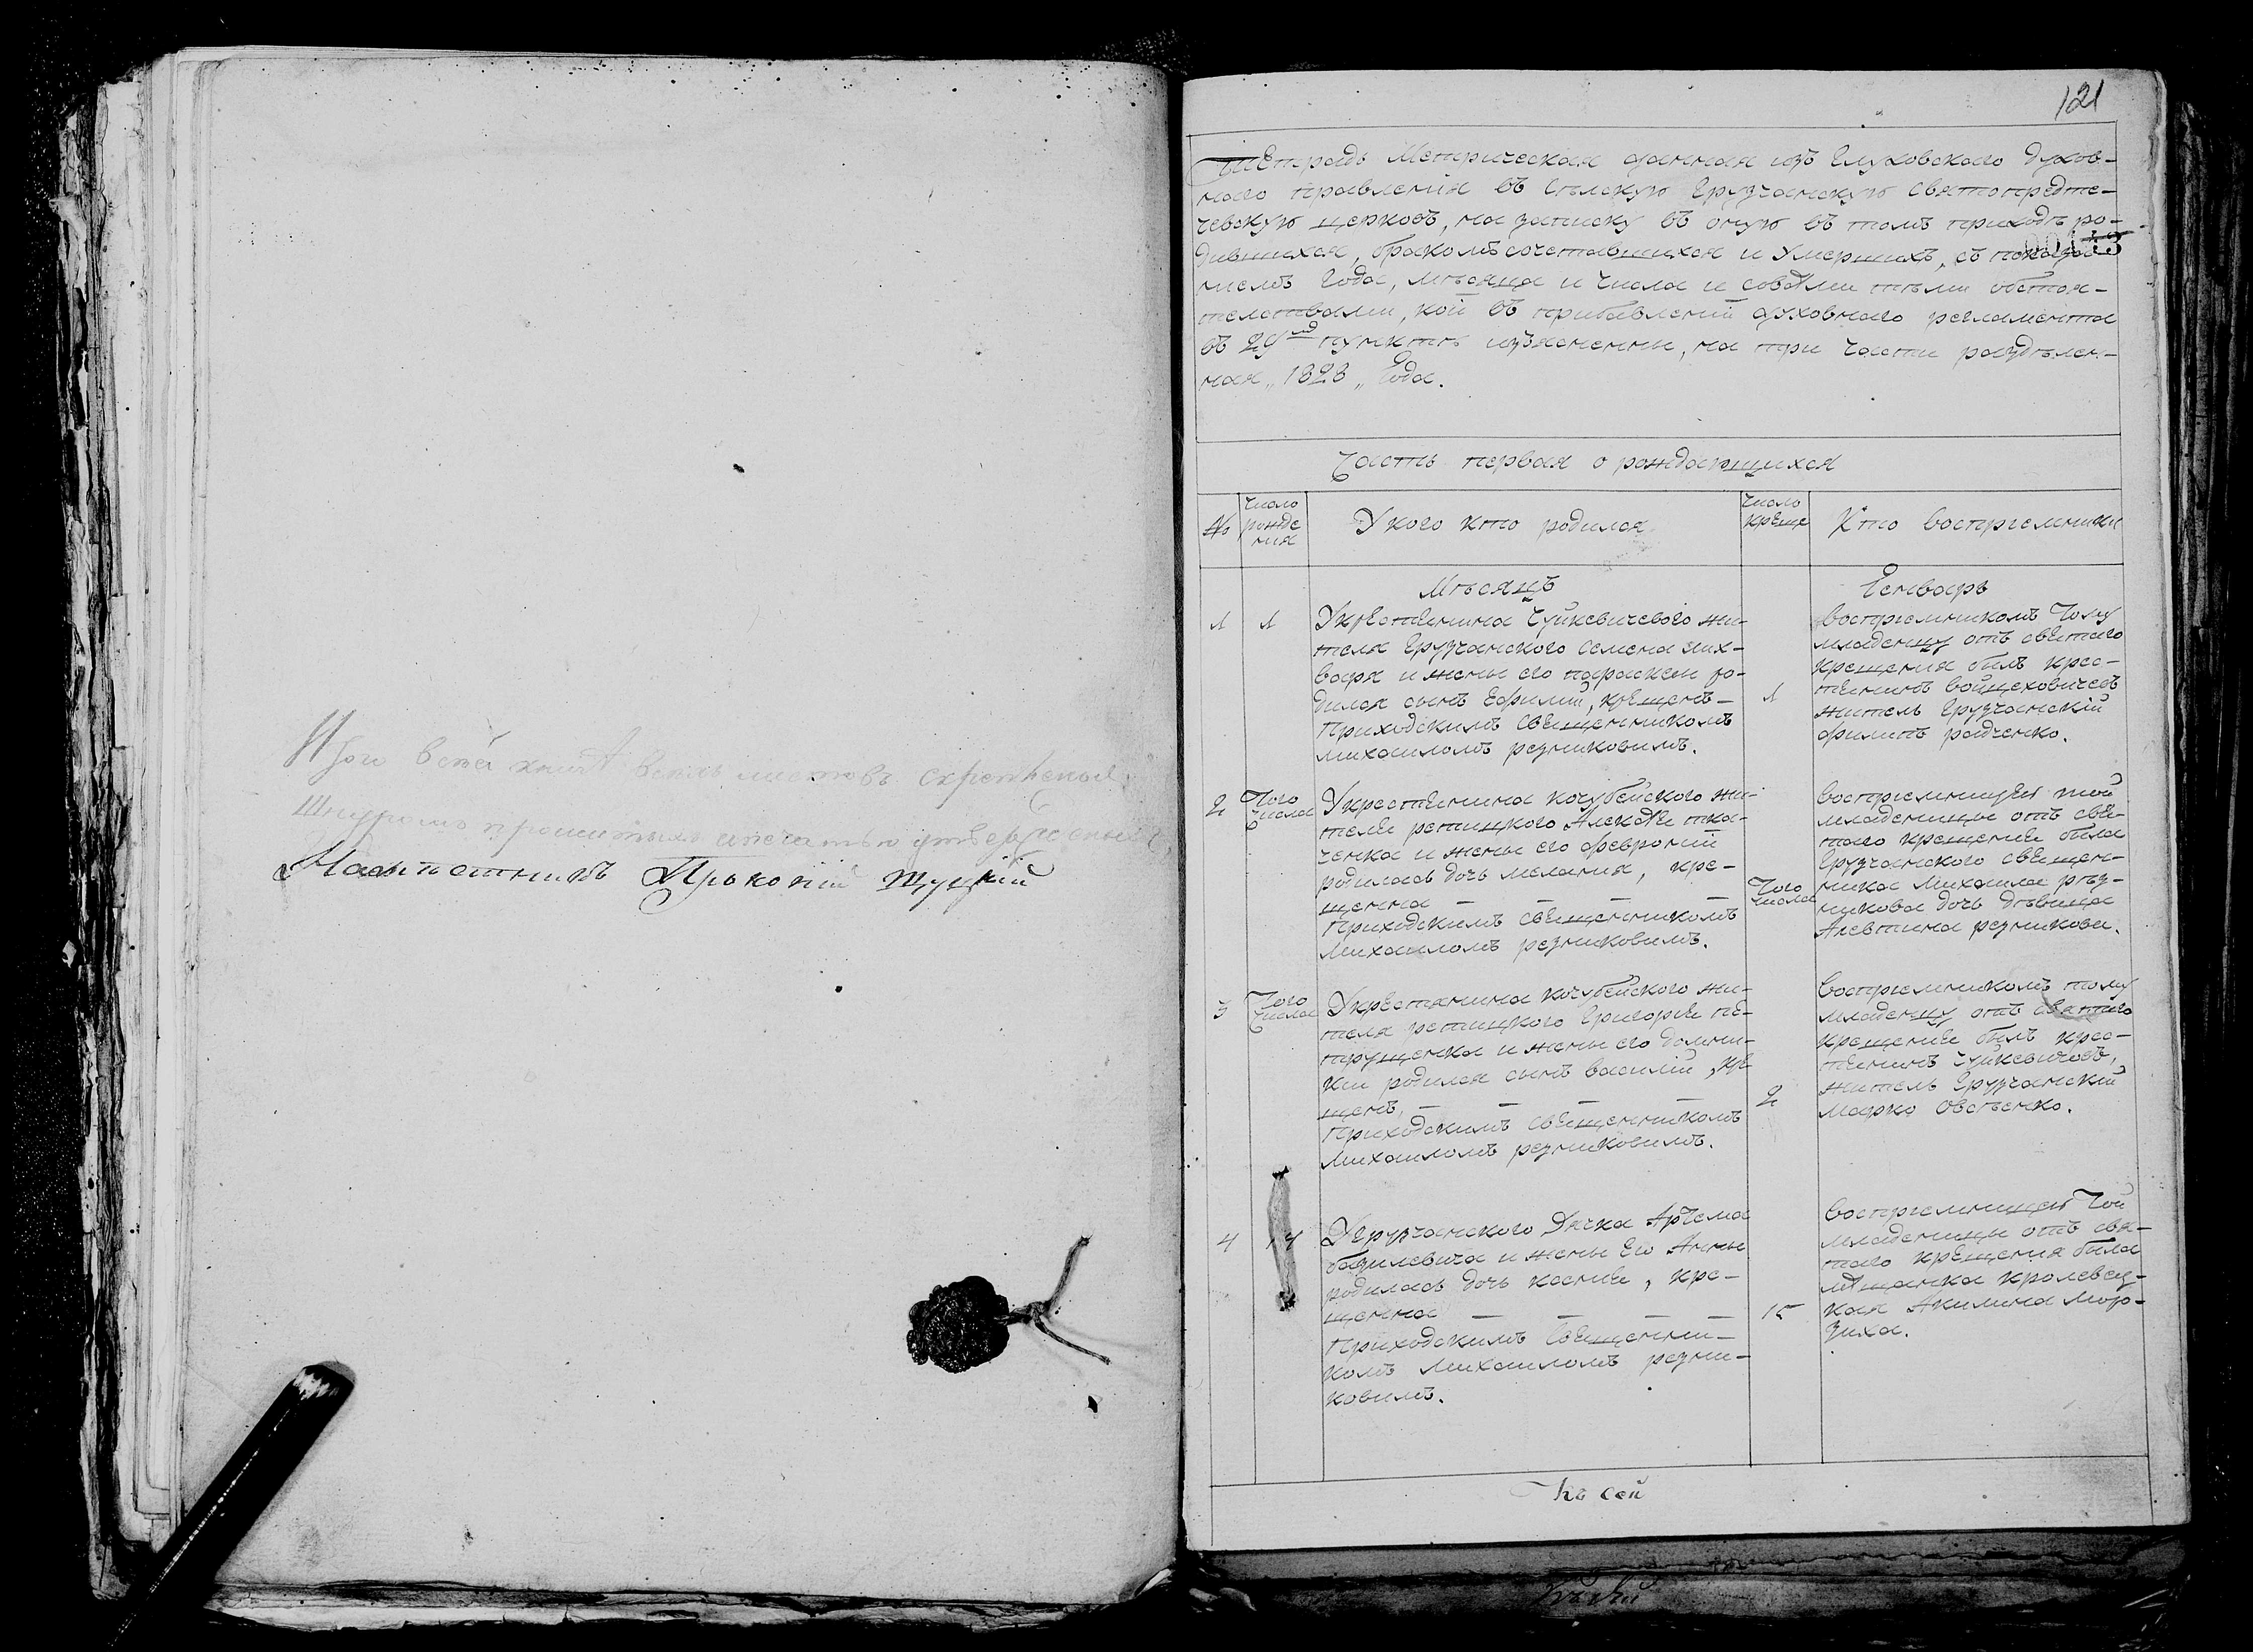 Итого в сей книгѣ восемь листовъ скрепленныхъ
Шнуромъ прошитыхъ и печатью утвержденныхъ
Намѣстникъ Прокопій Щуцкій
121
Тетрадь Метрическая данная изъ Глуховского духов-
ного правленія въ сѣлскую Грузчанскую святопредте-
чевскую церковъ, на записку въ оную въ томъ приходѣ ро-
дившихся, бракомъ сочетавшихся и умершихъ, съ показа-
ниемъ года, мѣсяца и числа и совсѣми тѣми обстоя-
телствами, кой въ прибавленій духовного регламента
въ 29мъ пунктѣ изъяснены, на три части раздѣлен-
ная „1828„ Года.
Часть первая о рождающихся
№
число рожде ния
У кого кто родился
число креще
Кто восприемники
Мѣсяцъ
Генваръ
1
1
У крестянина Чуйкевичевого жи-
теля Грузчанского семена лих-
варя и жены его параскеи ро-
дился сынъ Ефимий, крещенъ —
Приходскимъ священникомъ
михаиломъ резниковимъ.
1
восприемникомъ Тому
младенцу отъ святаго
крещения билъ крес-
тянинъ войцеховичевъ
житель Грузчанскій
филипъ радченко.
2
Того числа
У крестянина кочубейского жи-
теля ретицкого Алексѣя тка-
ченка и жены его февроний
родилась дочь мелания, кре-
щенна — — — —
Приходскимъ священникомъ
Михаиломъ резниковимъ.
Того числа
восприемницею той
младеницы отъ свя-
таго крещения била
Грузчанского священ-
ника Михаила рѣз-
никова дочь дѣвица
Алевтина резникова.
3
Того числа
У крестянина кочубейского жи-
теля ретицкого Григория пе-
трущенка и жены его домни-
кии родился сынъ василий, кре
щенъ, — — — —
Приходскимъ священникомъ
Михаиломъ резниковимъ.
2
восприемникомъ тому
младенцу отъ святаго
крещения билъ крес-
тянинъ чуйкевичовъ,
житель Грузчанскій
Марко Овсѣенко.
4
14
У Грузчанского Дячка Артема
базилевича и жены Его Анны
родилась дочь ксения, кре-
щенна — — —
Приходскимъ Священни-
комъ Михаиломъ резни-
ковимъ.
15
восприемницею Той
младеницы отъ свя-
таго крещения била
мѣщанка кролевец-
кая Акилина Моро-
зиха.
Къ сей